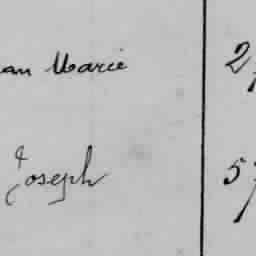 an Marie 2
Joseph 57